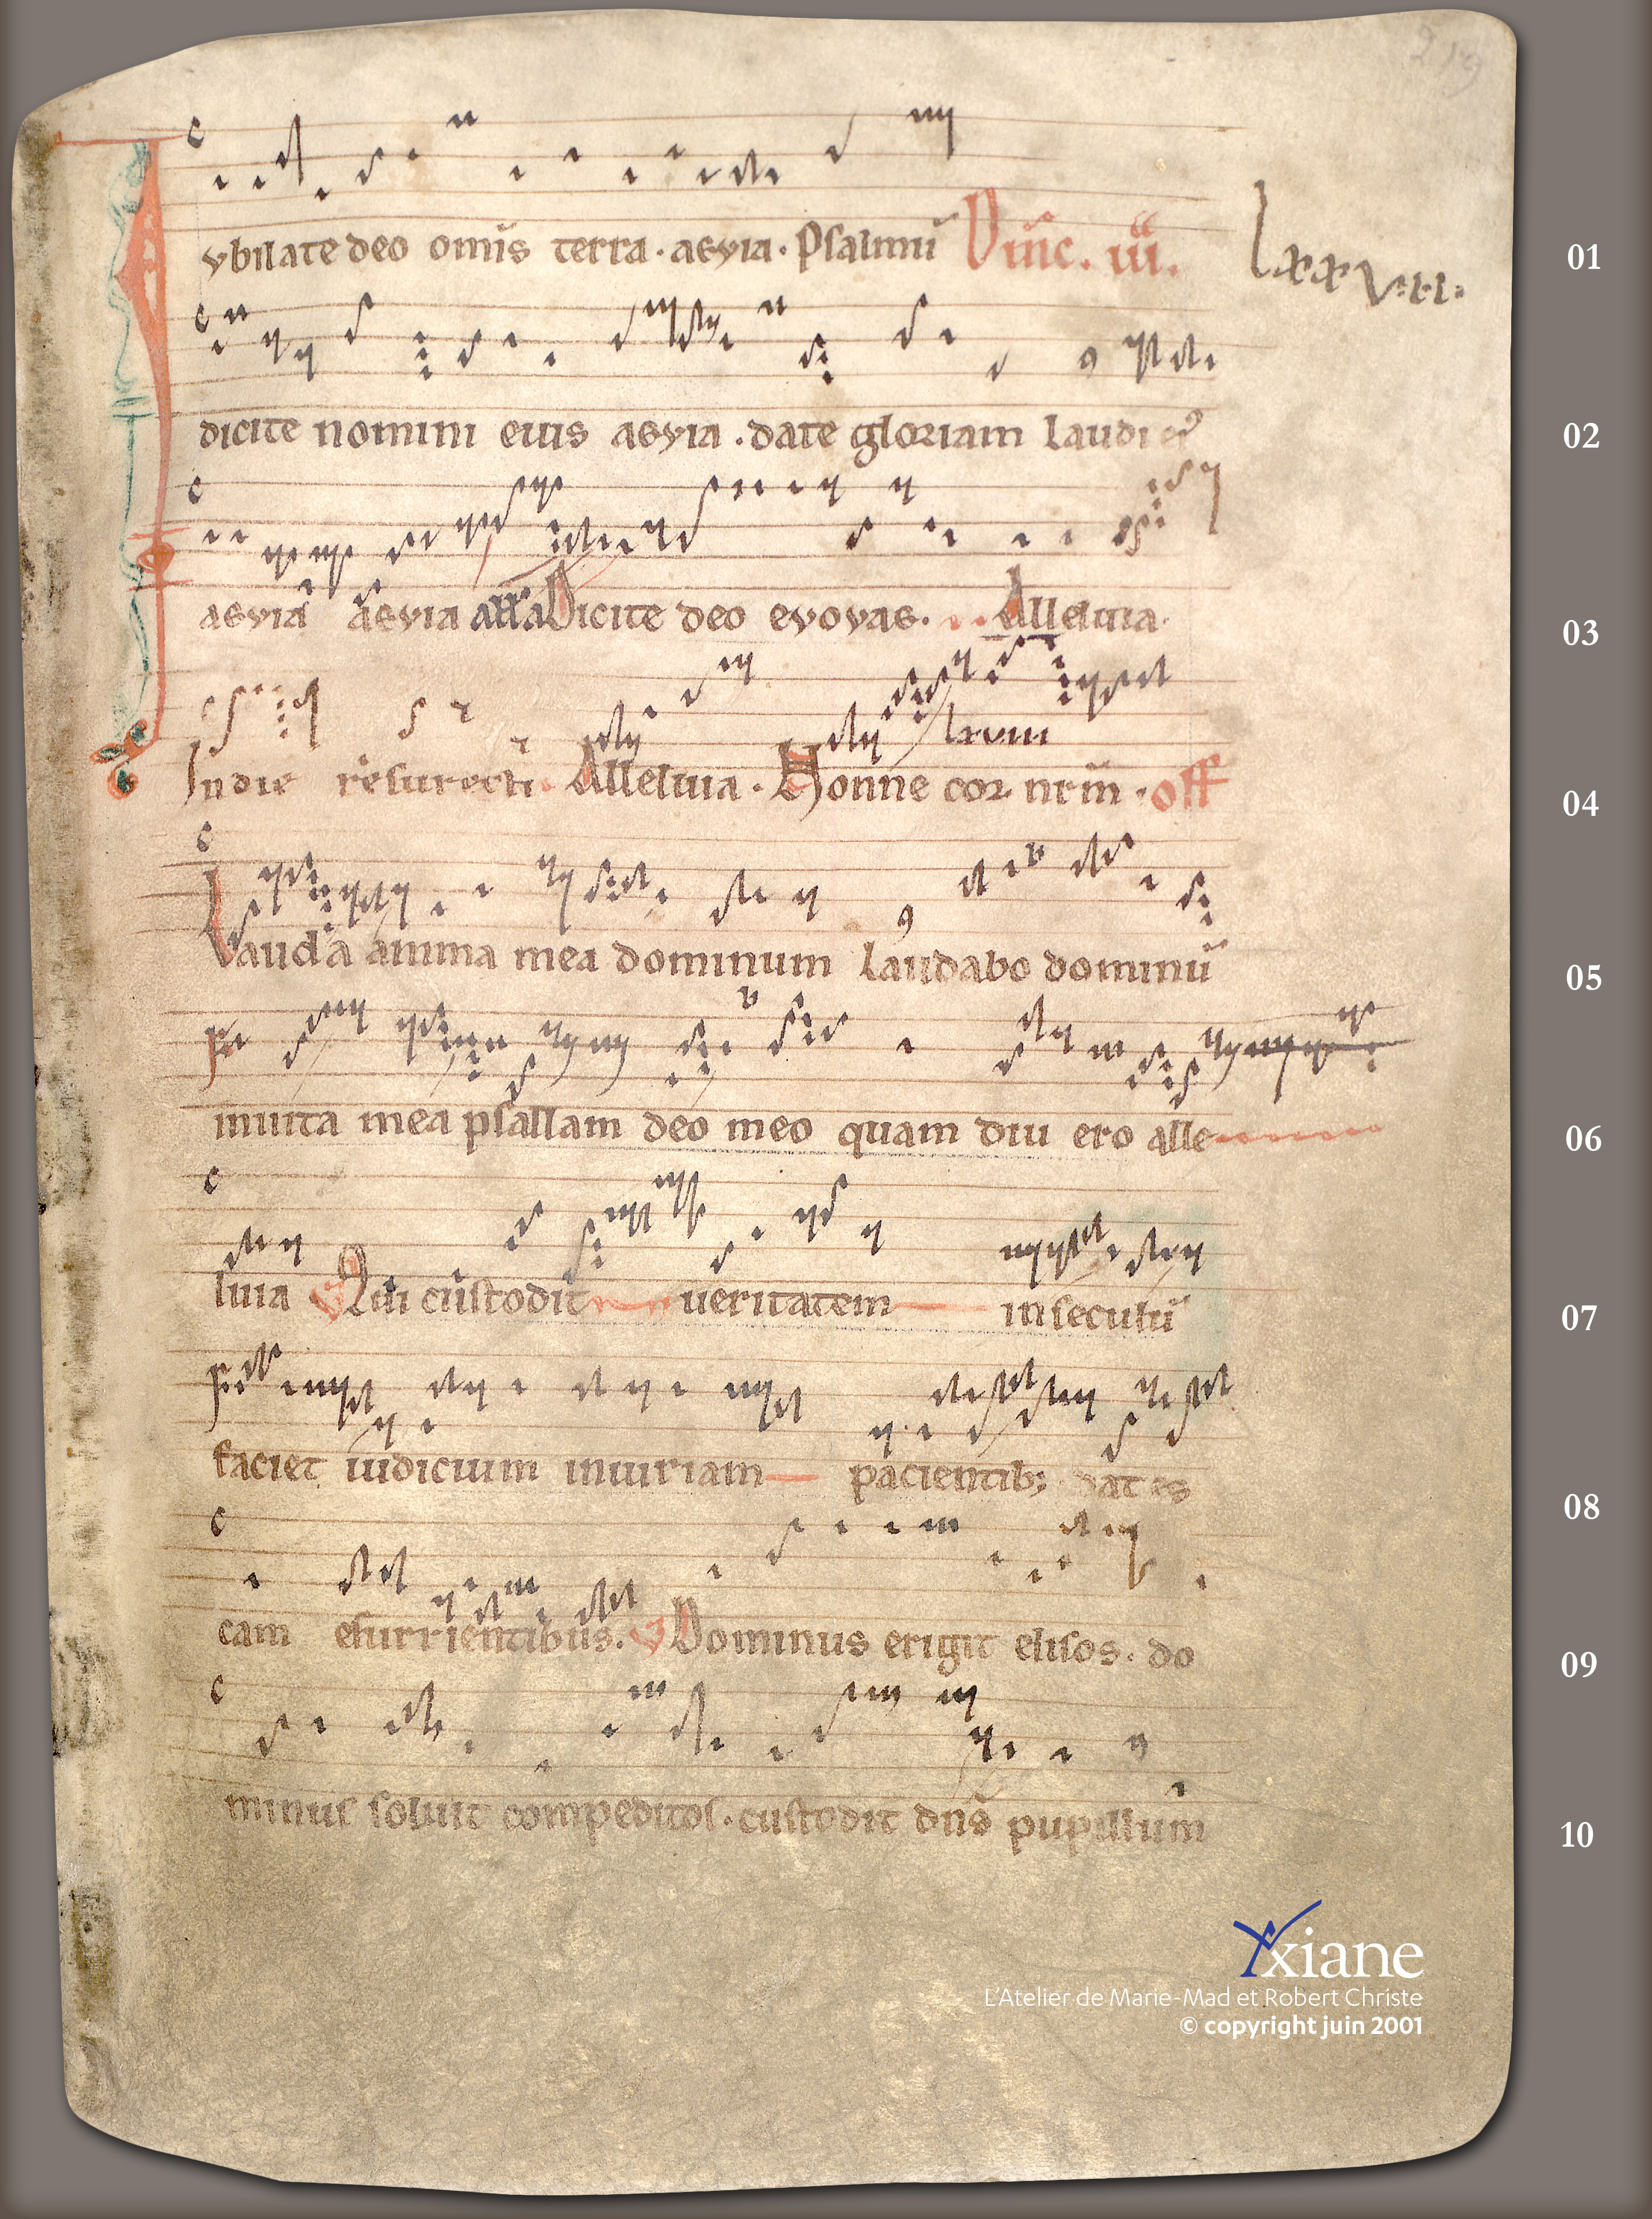 219
Iybilate deo omīs terra · aevia · Psalmū Dn̄ic. iii. lxxvii:
dicite nomini eius aevia . date gloriam laudi ei9
aevia aevia all'a Dicite deo evovae. Alleluia.
lxviii
In die resurecti. Alleluia . Nonne cor nr̄m . off
Lauda anima mea dominum laudabo dominū
in uita mea psallam deo meo quam diu ero alle
luia V Qui custodit ueritatem in seculū
faciet iudicium iniuriam pacientib; dat es
cam esurrientibus. V Dominus erigit elisos. do
minus soluit compeditos . custodit dn̄s pupillum
01
02
03
04
05
06
07
08
09
10
Yxiane
L'Atelier de Marie-Mad et Robert Christe
© copyright juin 2001